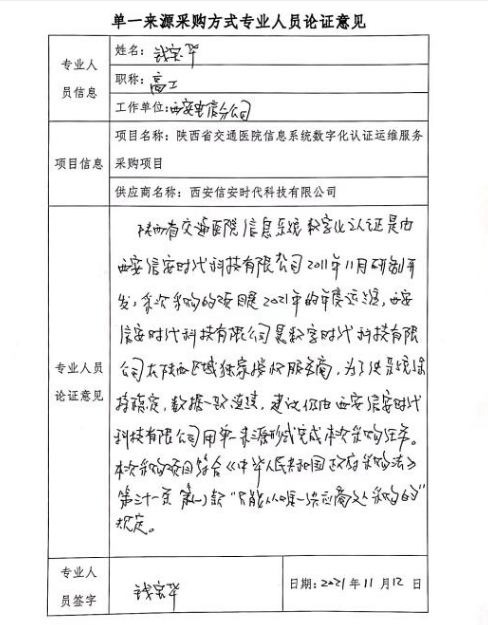 单一来源采购方式专业人员论证意见
专业人
员信息
姓名：钱宏平
职称：高工
工作单位：西安电信分公司
项目信息
项目名称：陕西省交通医院信息系统数字化认证运维服务
采购项目
供应商名称：西安信安时代科技有限公司
专业人员
论证意见
陕西省交通医院信息系统数字化认证是由
西安信安时代科技有限公司2011年11月研制开
发，本次采购的项目是2021年的年度运维，西安
信安时代科技有限公司是数字时代科技有限
公司在陕西区域独家授权服务商，为了使系统保
持稳定，数据一致连续，建议仍由西安信安时代
科技有限公司用单一来源形式完成本次采购任务。
本次采购项目符合《中华人民共和国政府采购法》
第三十一条第(一)款“只能从唯一供应商处采购的”
规定。
专业人
员签字
日期：2021年11月12日